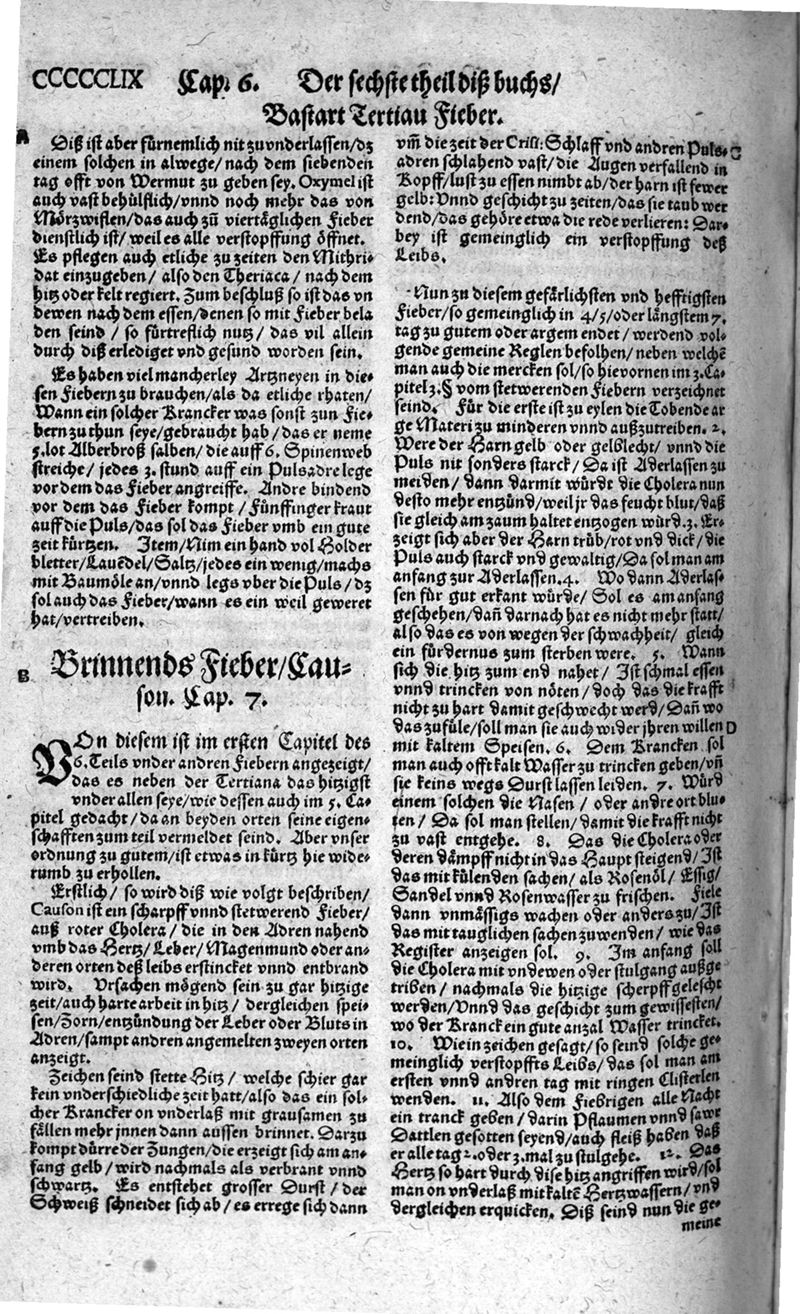 CCCCCLIX Cap. 6. Der sechste theil diß buchs/
Bastart Tertian Fieber.
A
Diß ist aber fürnemlich nit zu vnderlassen/dz
einem solchen in alwege/nach dem siebenden
tag offt von Wermut zu geben sey. Oxymel ist
auch vast behülflich/vnnd noch mehr das von
Mörzwiflen/das auch zů viertäglichen Fieber
dienstlich ist/weil es alle verstopffung öffnet.
Es pflegen auch etliche zu zeiten den Mithri-
dat einzugeben/also den Theriaca/nach dem
hitz oder kelt regiert. Zum beschluß so ist das vn
dewen nach dem essen/denen so mit Fieber bela
den seind/so fürtreflich nutz/das vil allein
durch diß erlediget vnd gesund worden sein.
Es haben viel mancherley Artzneyen in die-
sen Fiebern zu brauchen/als da etliche rhaten/
Wann ein solcher Krancker was sonst zun Fie-
bern zu thun seye/gebraucht hab/das er neme
5.lot Alberbroß salben/die auff 6. Spinenweb
streiche/jedes 3. stund auff ein Pulsadre lege
vor dem das Fieber angreiffe. Andre bindend
vor dem das Fieber kompt/Fünffinger kraut
auff die Puls/das sol das Fieber vmb ein gute
zeit kürtzen. Item/Nim ein hand vol Holder
bletter/Lauēdel/Saltz/jedes ein wenig/machs
mit Baumöle an/vnnd legs vber die Puls/dz
sol auch das Fieber/wann es ein weil geweret
hat/vertreiben.
B
Brinnends Fieber/Cau-
son. Cap. 7.
VOn diesem ist im ersten Capitel des
6.Teils vnder andren Fiebern angezeigt/
das es neben der Tertiana das hitzigst
vnder allen seye/wie dessen auch im 5. Ca-
pitel gedacht/da an beyden orten seine eigen-
schafften zum teil vermeldet seind. Aber vnser
ordnung zu gutem/ist etwas in kürtz hie wide-
rumb zu erhollen.
Erstlich/so wird diß wie volgt beschriben/
Causon ist ein scharpff vnnd stetwerend Fieber/
auß roter Cholera/die in den Adren nahend
vmb das Hertz/Leber/Magenmund oder an-
deren orten deß leibs erstincket vnnd entbrand
wird. Vrsachen mögend sein zu gar hitzige
zeit/auch harte arbeit in hitz/dergleichen spei-
sen/Zorn/entzündung der Leber oder Bluts in
Adren/sampt andren angemelten zweyen orten
anzeigt.
Zeichen seind stette Hitz/welche schier gar
kein vnderschiedliche zeit hatt/also das ein sol-
cher Krancker on vnderlaß mit grausamen zu
fällen mehr jnnen dann aussen brinnet. Darzu
kompt dürre der Zungen/die erzeigt sich am an-
fang gelb/wird nachmals als verbrant vnnd
schwartz. Es entstehet grosser Durst/der
Schweiß schneidet sich ab/es errege sich dann
C
vm̄ die zeit der Crisi: Schlaff vnd andren Puls-
adren schlahend vast/die Augen verfallend in
Kopff/lust zu essen nimbt ab/der harn ist fewer
gelb: Vnnd geschicht zu zeiten/das sie taub wer
dend/das gehöre etwa die rede verlieren: Dar-
bey ist gemeinglich ein verstopffung deß
Leibs.
Nun zu diesem gefärlichsten vnd hefftigsten
Fieber/so gemeinglich in 4/5/oder längstem 7.
tag zu gutem oder argem endet/werdend vol-
gende gemeine Reglen befolhen/neben welchē
man auch die mercken sol/so hievornen im 3.Ca-
pitel 3.§ vom stetwerenden Fiebern verzeichnet
seind. Für die erste ist zu eylen die Tobende ar
ge Materi zu minderen vnnd außzutreiben. 2.
Were der Harn gelb oder gelblecht/vnnd die
Puls nit sonders starck/Da ist Aderlassen zu
meiden/dann darmit würdt die Cholera nun
desto mehr entzünd/weil jr das feucht blut/daß
sie gleich am zaum haltet entzogen würd.3. Er-
zeigt sich aber der Harn trüb/rot vnd dick/die
Puls auch starck vnd gewaltig/Da sol man am
anfang zur Aderlassen.4. Wo dann Aderlas-
sen für gut erkant würde/Sol es am anfang
geschehen/dañ darnach hat es nicht mehr statt/
also das es von wegen der schwachheit/gleich
ein fürdernus zum sterben were. 5. Wann
sich die hitz zum end nahet/Ist schmal essen
vnnd trincken von nöten/doch das die krafft
nicht zu hart damit geschwecht werd/Dañ wo
das zufüle/soll man sie auch wider jhren willen
D
mit kaltem Speisen. 6. Dem Krancken sol
man auch offt kalt Wasser zu trincken geben/vn̄
sie keins wegs Durst lassen leiden. 7. Würd
einem solchen die Nasen/oder andre ort blu-
ten/Da sol man stellen/damit die krafft nicht
zu vast entgehe. 8. Das die Cholera oder
deren dämpff nicht in das Haupt steigend/Ist
das mit külenden sachen/als Rosenöl/Essig/
Sandel vnnd Rosenwasser zu frischen. Fiele
dann vnmässigs wachen oder anders zu/Ist
das mit tauglichen sachen zuwenden/wie das
Register anzeigen sol. 9. Im anfang soll
die Cholera mit vndewen oder stulgang außge
triben/nachmals die hitzige scherpff gelescht
werden/Vnnd das geschicht zum gewissesten/
wo der Kranck ein gute anzal Wasser trincket.
10. Wie in zeichen gesagt/so seind solche ge-
meinglich verstopffts Leibs/das sol man am
ersten vnnd andren tag mit ringen Clisterlen
wenden. 11. Also dem Fiebrigen alle Nacht
ein tranck geben/darin Pflaumen vnnd sawr
Dattlen gesotten seyend/auch fleiß haben daß
er alle tag 2.oder 3.mal zu stulgehe. 12. Das
Hertz so hart durch dise hitz angriffen wird/sol
man on vnderlaß mit kaltē Hertzwassern/vnd
dergleichen erquicken. Diß seind nun die ge-
meine